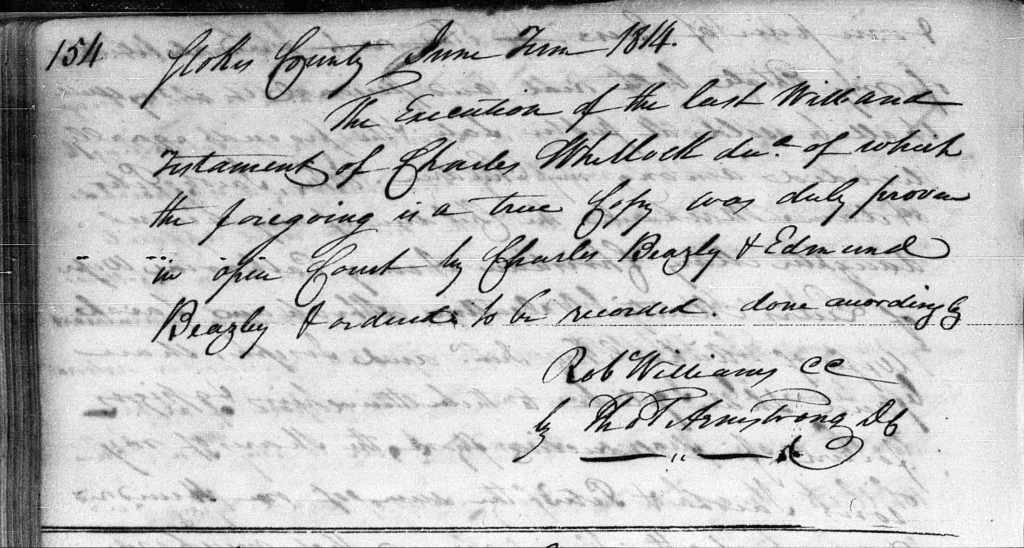 154 Stokes County June Term 1814.
The Execution of the last Will and
Testament of Charles Whitlock decd. of which
the foregoing is a true Copy was duly proven
in open Court by Charles Beazly & Edmund
Beazley & ordered to be recorded. done acordingly
Robt Williams CC
by Tho T Armstrong DC